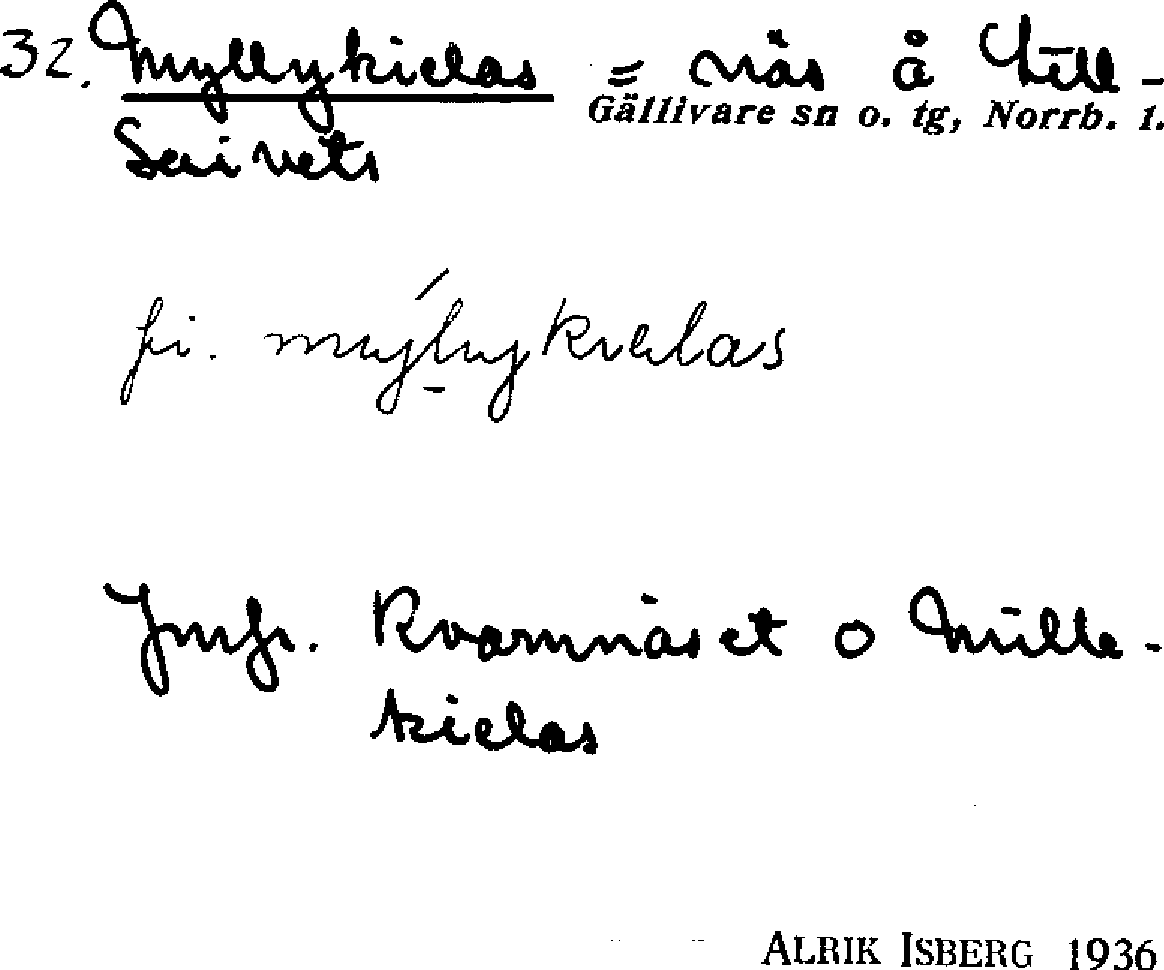 32. Myllykielas = näs å Lill-
Gällivare sn o. tg, Norrb. l.
Saivets
fi. mýlly̱kielas
Jmfr. Kvarnnäset o Mülle-
kielas
ALRIK ISBERG 1936